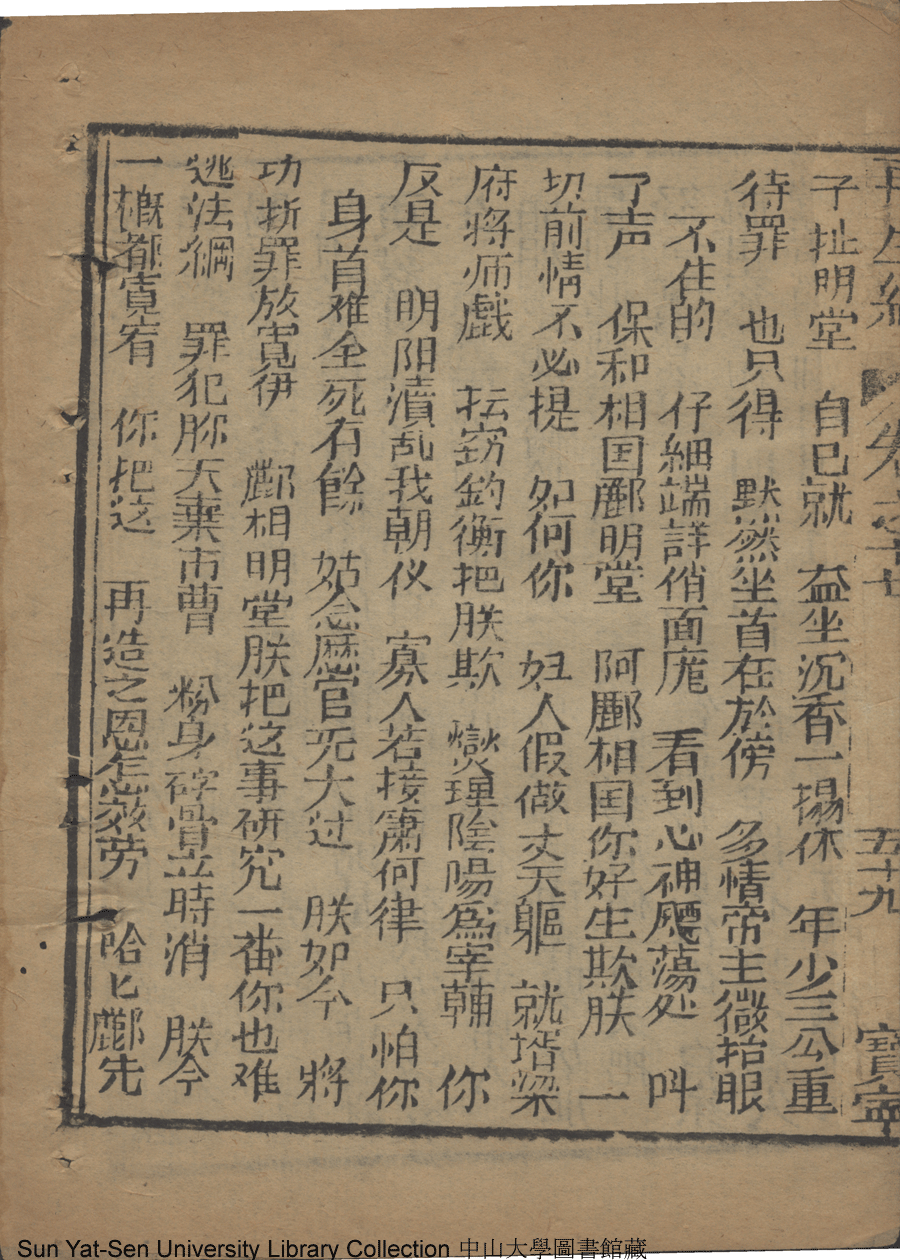 再生緣 卷之十七 五十九 寳寕
子扯明堂 自已就 益坐沉香一揚休 年少三公重
待罪 也只得 默然坐首在於傍 多情帝主微抬眼
不住的 仔細端詳俏面庞 看到心神飃蕩处 叫
了声 保和相国酈明堂 阿酈相国你好生欺朕 一
切前情不必提 如何你 妇人假做丈夫軀 就壻梁
府将师戲 抎窃釣衡把朕欺 爕理陰陽爲宰輔 你
反是 明阳瀆乱我朝仪 寡人若按簫何律 只怕你
身首难全死有餘 姑念歴官旡大过 朕如今 將
功折罪放寛伊 酈相明堂朕把这事研究一番你也难
逃法網 罪犯弥天棄市曹 粉身碎骨立時消 朕今
一概都寛宥 你把这 再造之恩怎效劳 哈匕酈先
Sun Yat-Sen University Library Collection 中山大學圖書館藏